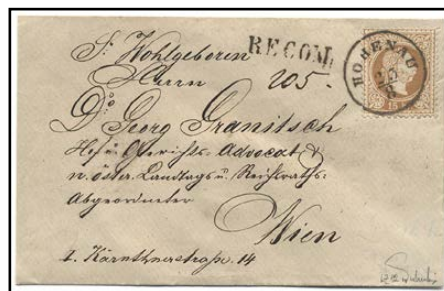 Sr Wohlgeboren
RECOM.
HOHENAU
Herrn 205.
15
Dr Georg Granitsch
Hof u. Gerichts-Advocat &
n. öster. Landtags u. Reichsraths-
Abgeordneter
Wien
I. Kärnthnerstraße 14